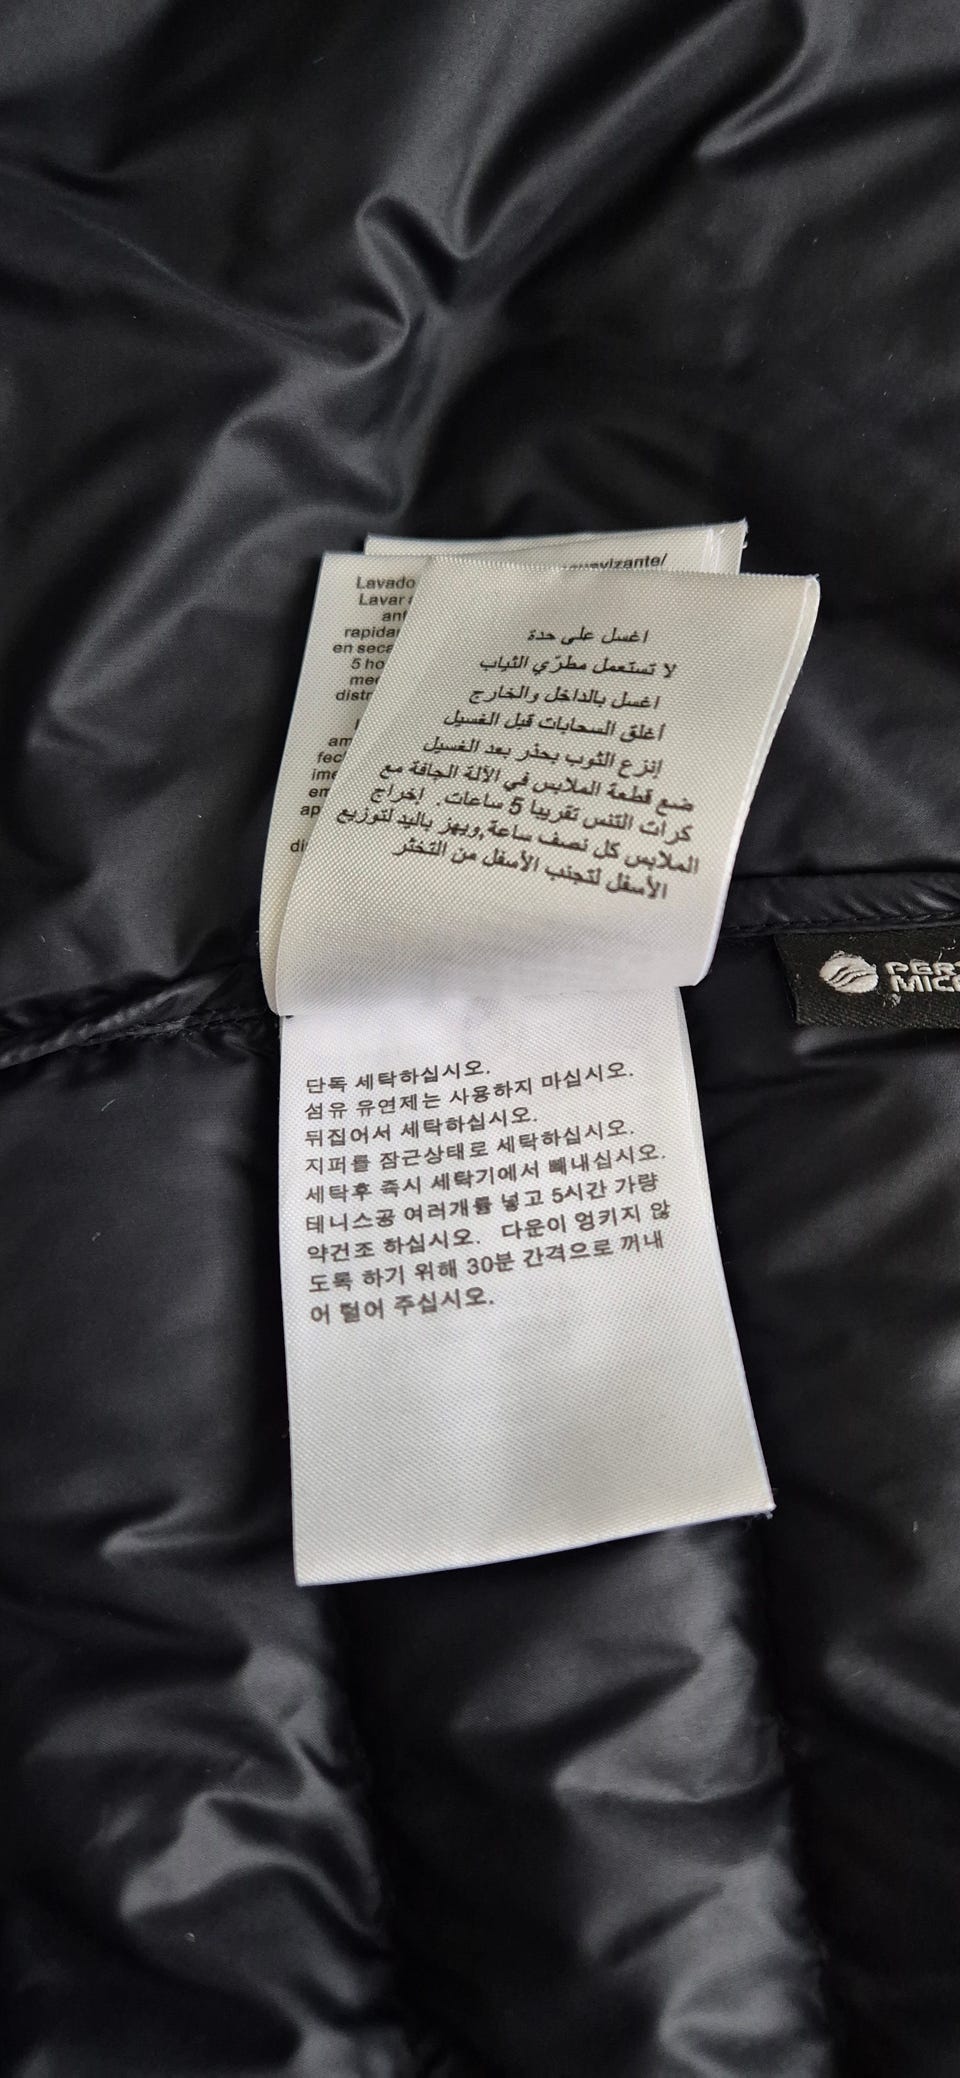 uavizante/
Lavado
Lavar a
ant
rapidar
en seca
5 ho
med
distr
am
fec
ime
em
ap
di
اغسل على حدة
لا تستعمل مطرّي الثياب
اغسل بالداخل والخارج
أغلق السحابات قبل الغسيل
إنزع الثوب بحذر بعد الغسيل
ضع قطعة الملابس في الآلة الجافة مع
كرات التنس تقريبا 5 ساعات. إخراج
الملابس كل نصف ساعة,ويهز باليد لتوزيع
الأسفل لتجنب الأسفل من التخثر
PERT
MICR
단독 세탁하십시오.
섬유 유연제는 사용하지 마십시오.
뒤집어서 세탁하십시오.
지퍼를 잠근상태로 세탁하십시오.
세탁후 즉시 세탁기에서 빼내십시오.
테니스공 여러개를 넣고 5시간 가량
약건조 하십시오. 다운이 엉키지 않
도록 하기 위해 30분 간격으로 꺼내
어 털어 주십시오.